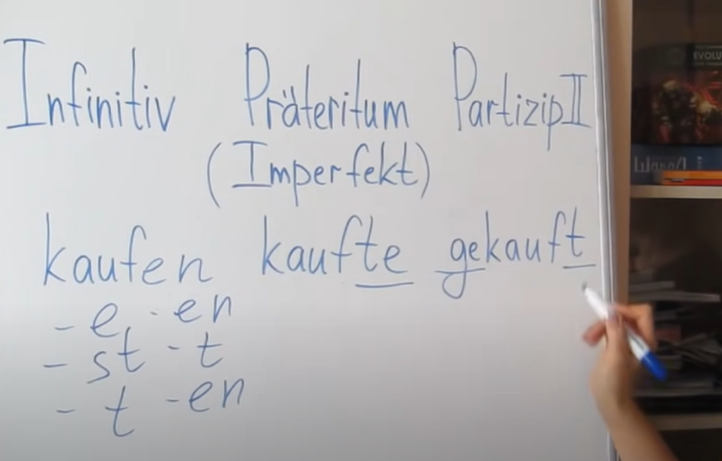 Infinitiv Präteritum Partizip II
(Imperfekt)
kaufen kaufte gekauft
-e, -en
-st -t
-t -en
EVOLU